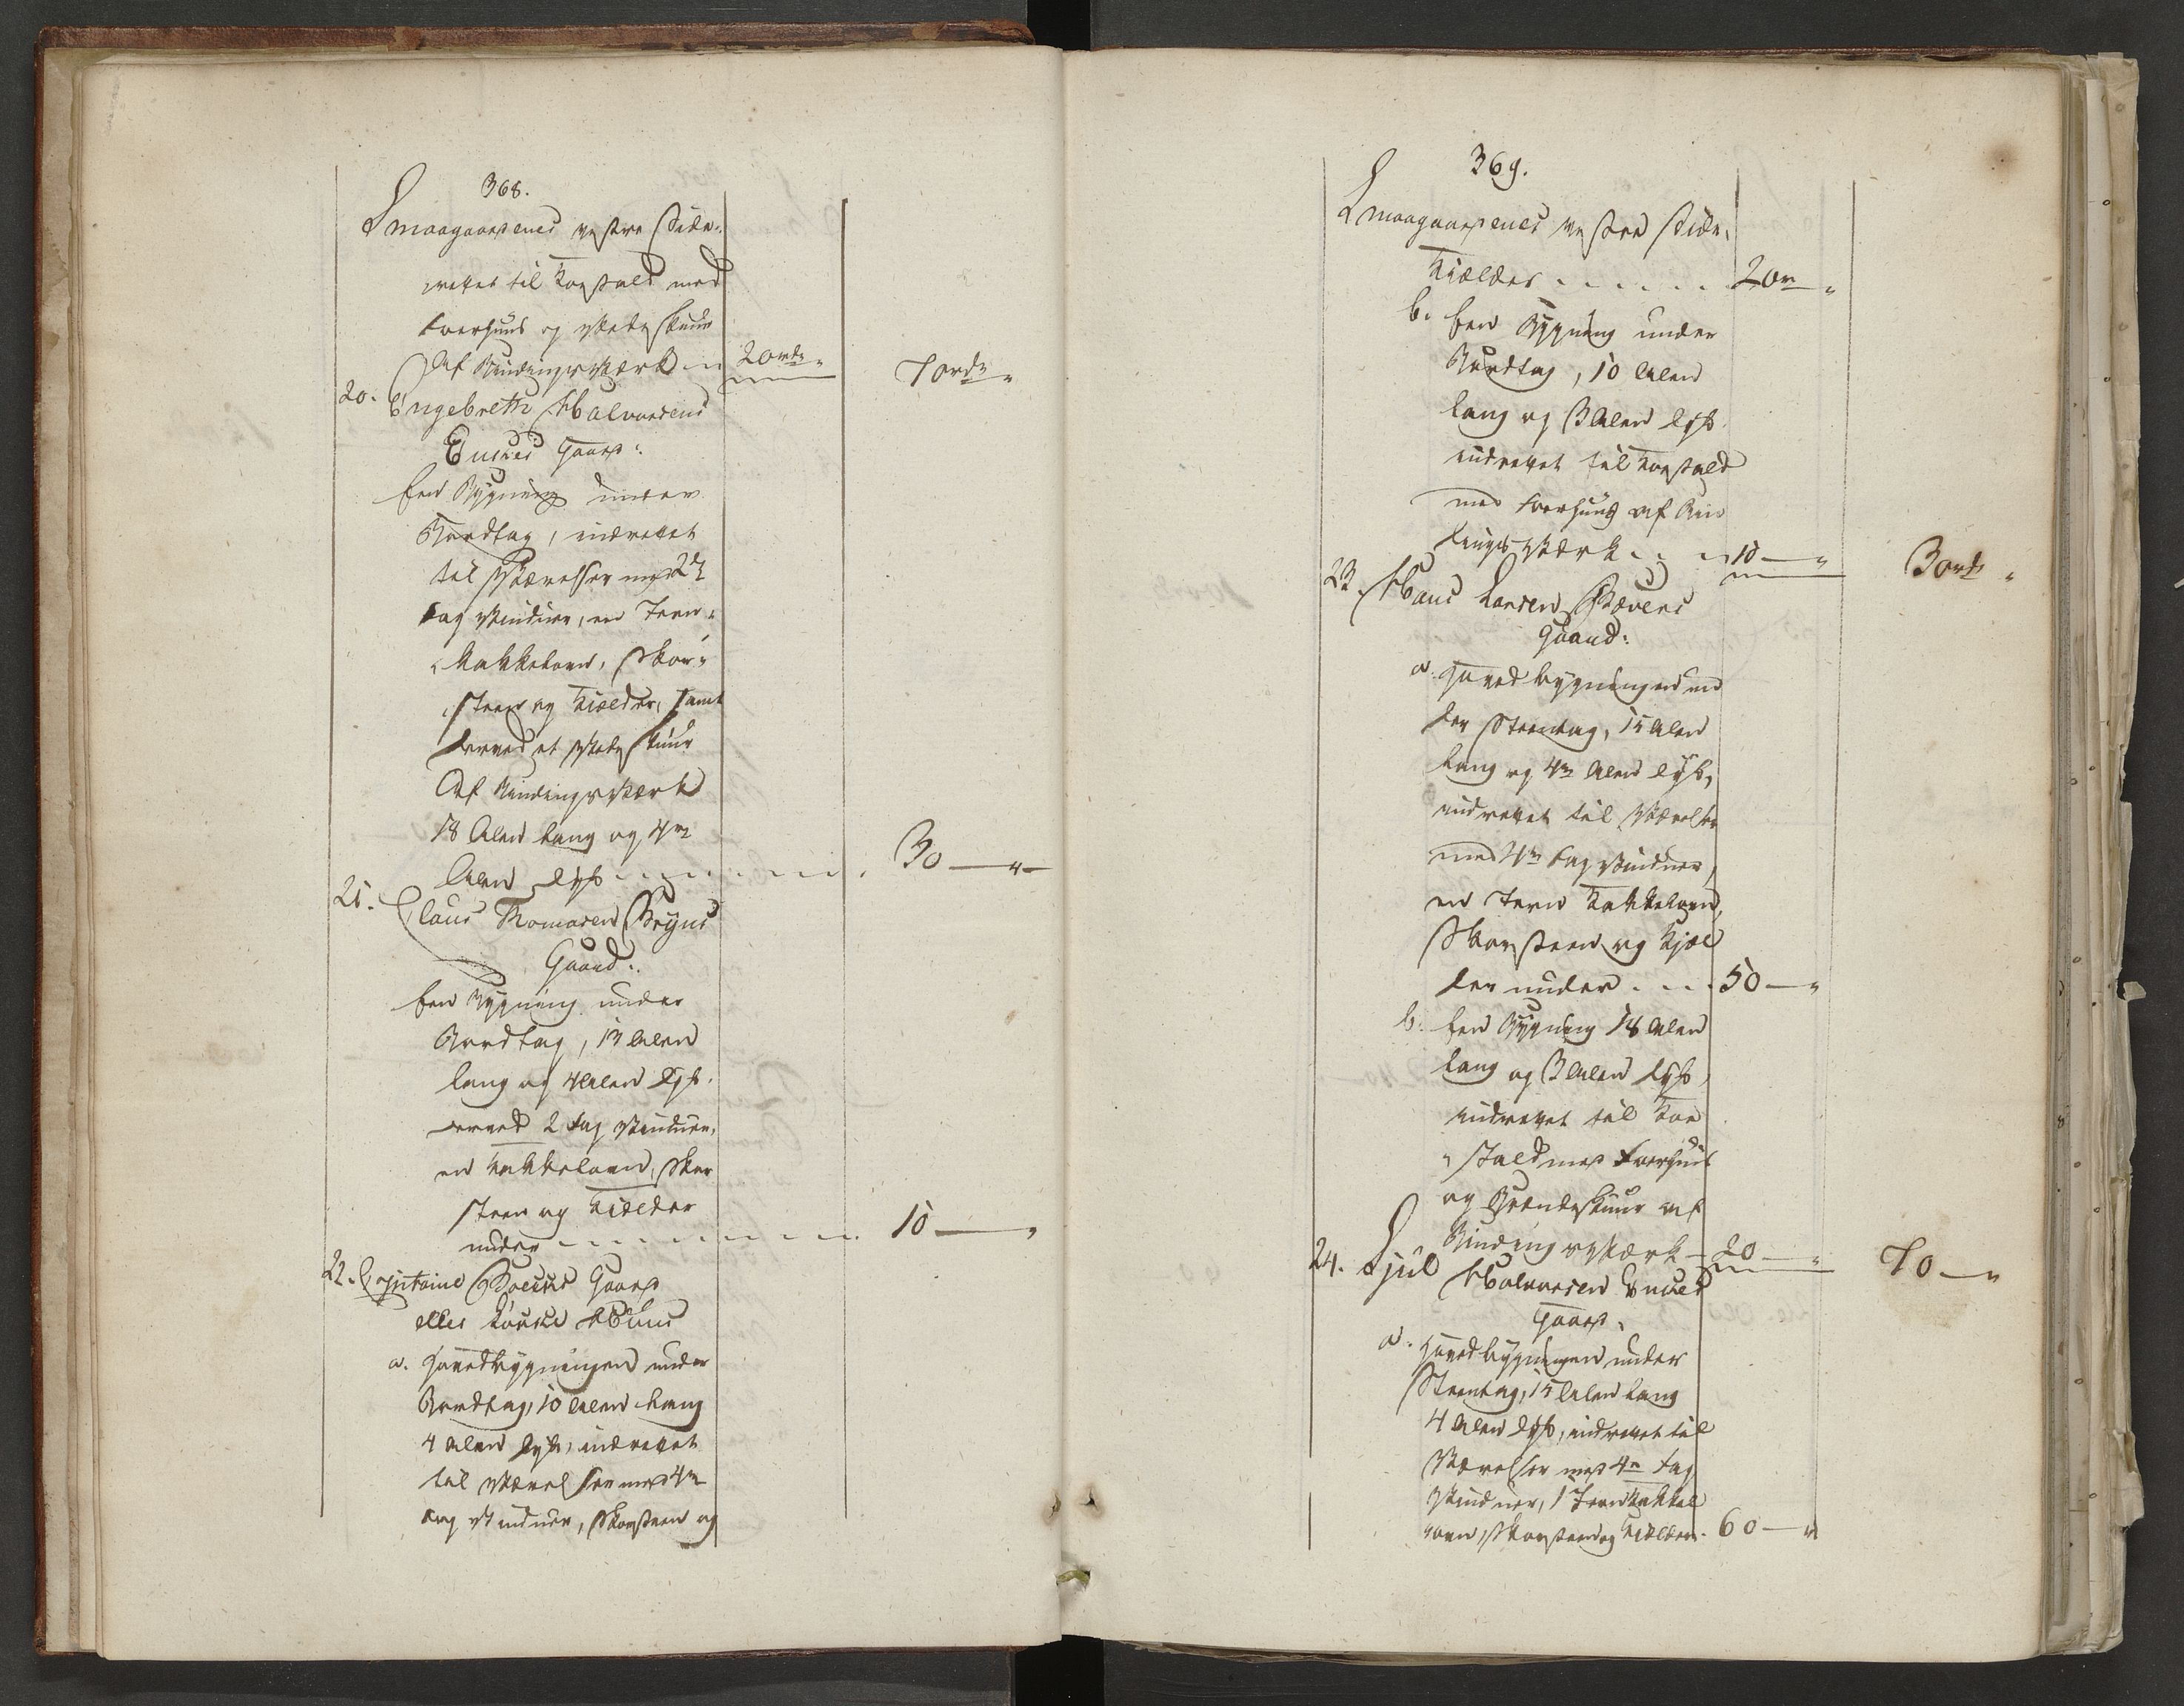 368.
Smaagaardenes vestre Side.
rettet til Koestald med
Foerhuus og Vedeskuur
Af Bindingsværk 20 rdr "
70 rdr "
20. Engebreth Halvorsens
Enkes Gaard:
Een Bygning under
Bordtag, indrettet
til Værelser med 2de
Fag Vinduer, en Jern-
Kakkelovn, Skor-
steen og Kielder, samt
derved et Vedeskuur
Af Bindingsværk
18 Alen lang og 4re
Alen dyb 30 — "
21. Claus Thomasen Bryns
Gaard:
Een Bygning under
Bordtag, 13 Alen
lang og 4 Alen dyb.
derved 2 Fag Vinduer,
en Kakkelovn, Skor
steen og Kielder
under 10 — "
22. Captaine Gaard
eller Huus
a. Hovedbygningen under
Bordtag, 10 Alen lang
4 Alen dyb, indrettet
til Værelser med 4re
Fag Vinduer, Skorsteen og
369.
Smaagaardenes vestre Side.
Kielder 20 r "
b. Een Bygning under
Bordtag, 10 Alen
lang og 3 Alen dyb
indrettet til Koestald
med Foerhuus af Bin
dingsværk 10 — "
30 rdr "
23. Hans Larsen
Gaard:
a. Hovedbygningen un
der Steentag, 15 Alen
lang og 4re Alen dyb,
indrettet til Værelser
med 4re Fag Vinduer,
en Jern Kakkelovn,
Skorsteen og Kjæl
der under 50 — "
b. Een Bygning 18 Alen
lang og 3 Alen dyb,
indrettet til Koe
stald med Foerhuus
og Brændeskuur af
Bindingsværk 20 — "
70 — "
24. Sjul Halvorsen Enkes
Gaard.
a. Hovedbygningen under
Steentag, 15 Alen lang
4 Alen dyb, indrettet til
Værelser med 4re Fag
Vinduer, 1 Jern Kakkel
ovn, Skorsteen og Kielder 60 — "